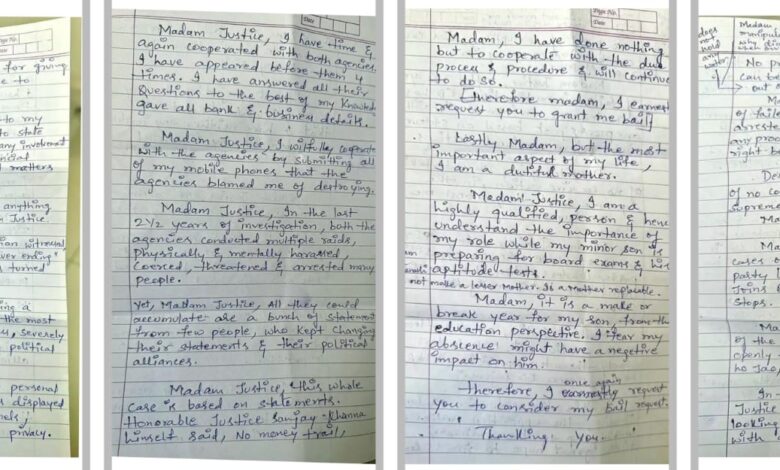 for giving
to
to my
to state
any involvement
matters
anything
Justice
witnesses
ever ending"
turned
a
the most
severely
political
personal
displayed
privacy.
Page No.
Date
Madam Justice, I have time &
again cooperated with both agencies.
I have appeared before them 4
times. I have answered all their
Questions to the best of my knowledge
gave all bank & business details.
Madam Justice, I will fully cooperate
with the agencies by submitting all
of my mobile phones that the
agencies blamed me of destroying.
Madam Justice, In the last
2 1/2 years of investigation, both the
agencies conducted multiple raids,
physically & mentally harassed,
coerced, threatened & arrested many
people.
Yet, Madam Justice, All they could
accumulate are a bunch of statements
from few people, who kept changing
their statements & their political
alliances.
Madam Justice, this whole
case is based on statements.
Honorable Justice Sanjay Khanna
himself said, No money trail,
Page No.
Date
Madam, I have done nothing
but to cooperate with the due
process & procedure & will continue
to do so.
[Therefore madam, I earnest
request you to grant me bail]
Lastly Madam, but the most
important aspect of my life,
I am a dutiful mother.
Madam Justice, I am a
highly qualified, person & hence
understand the importance of
my role while my minor son is
preparing for board exams & his
aptitude tests.
not make a lesser mother. Is a Mother replacable.
Madam, it is a make or
break year for my son, from the
education perspective. I fear my
abscence might have a negative
impact on him.
once again
Therefore, I earnestly request
you to consider my bail request.
Thanking You.
does
not
hold
any
water
Madam
manipula
why di
No p
can be
out o
of faile
arreste
any proc
right be
De
of no co
supreme
Ma
cases o
party
Joins b
Stops.
Ma
of the
openly
ho Jao,
In
Justice
looking
with